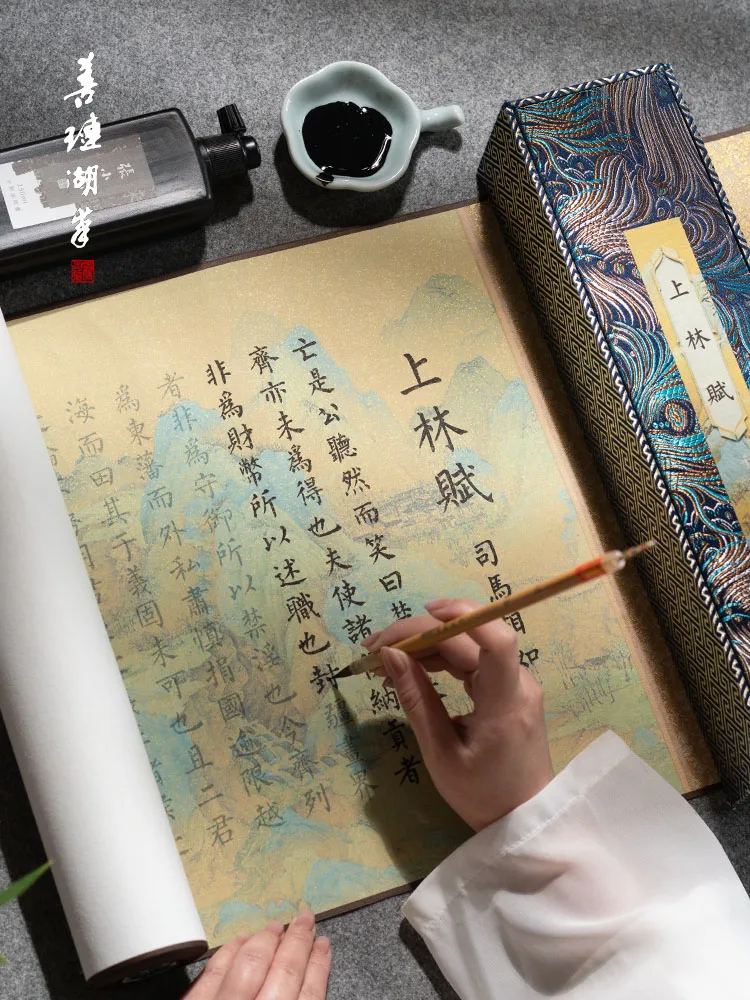 善璉湖筆
上林賦
上林賦
司馬
亡是公聽然而笑曰楚
齊亦未為得也夫使諸納貢者
非為財幣所以述職也封疆畫界
者非為守御所以禁淫也今齊列
為東藩而外私肅慎捐國逾限越
海而田其于義固未可也且二君